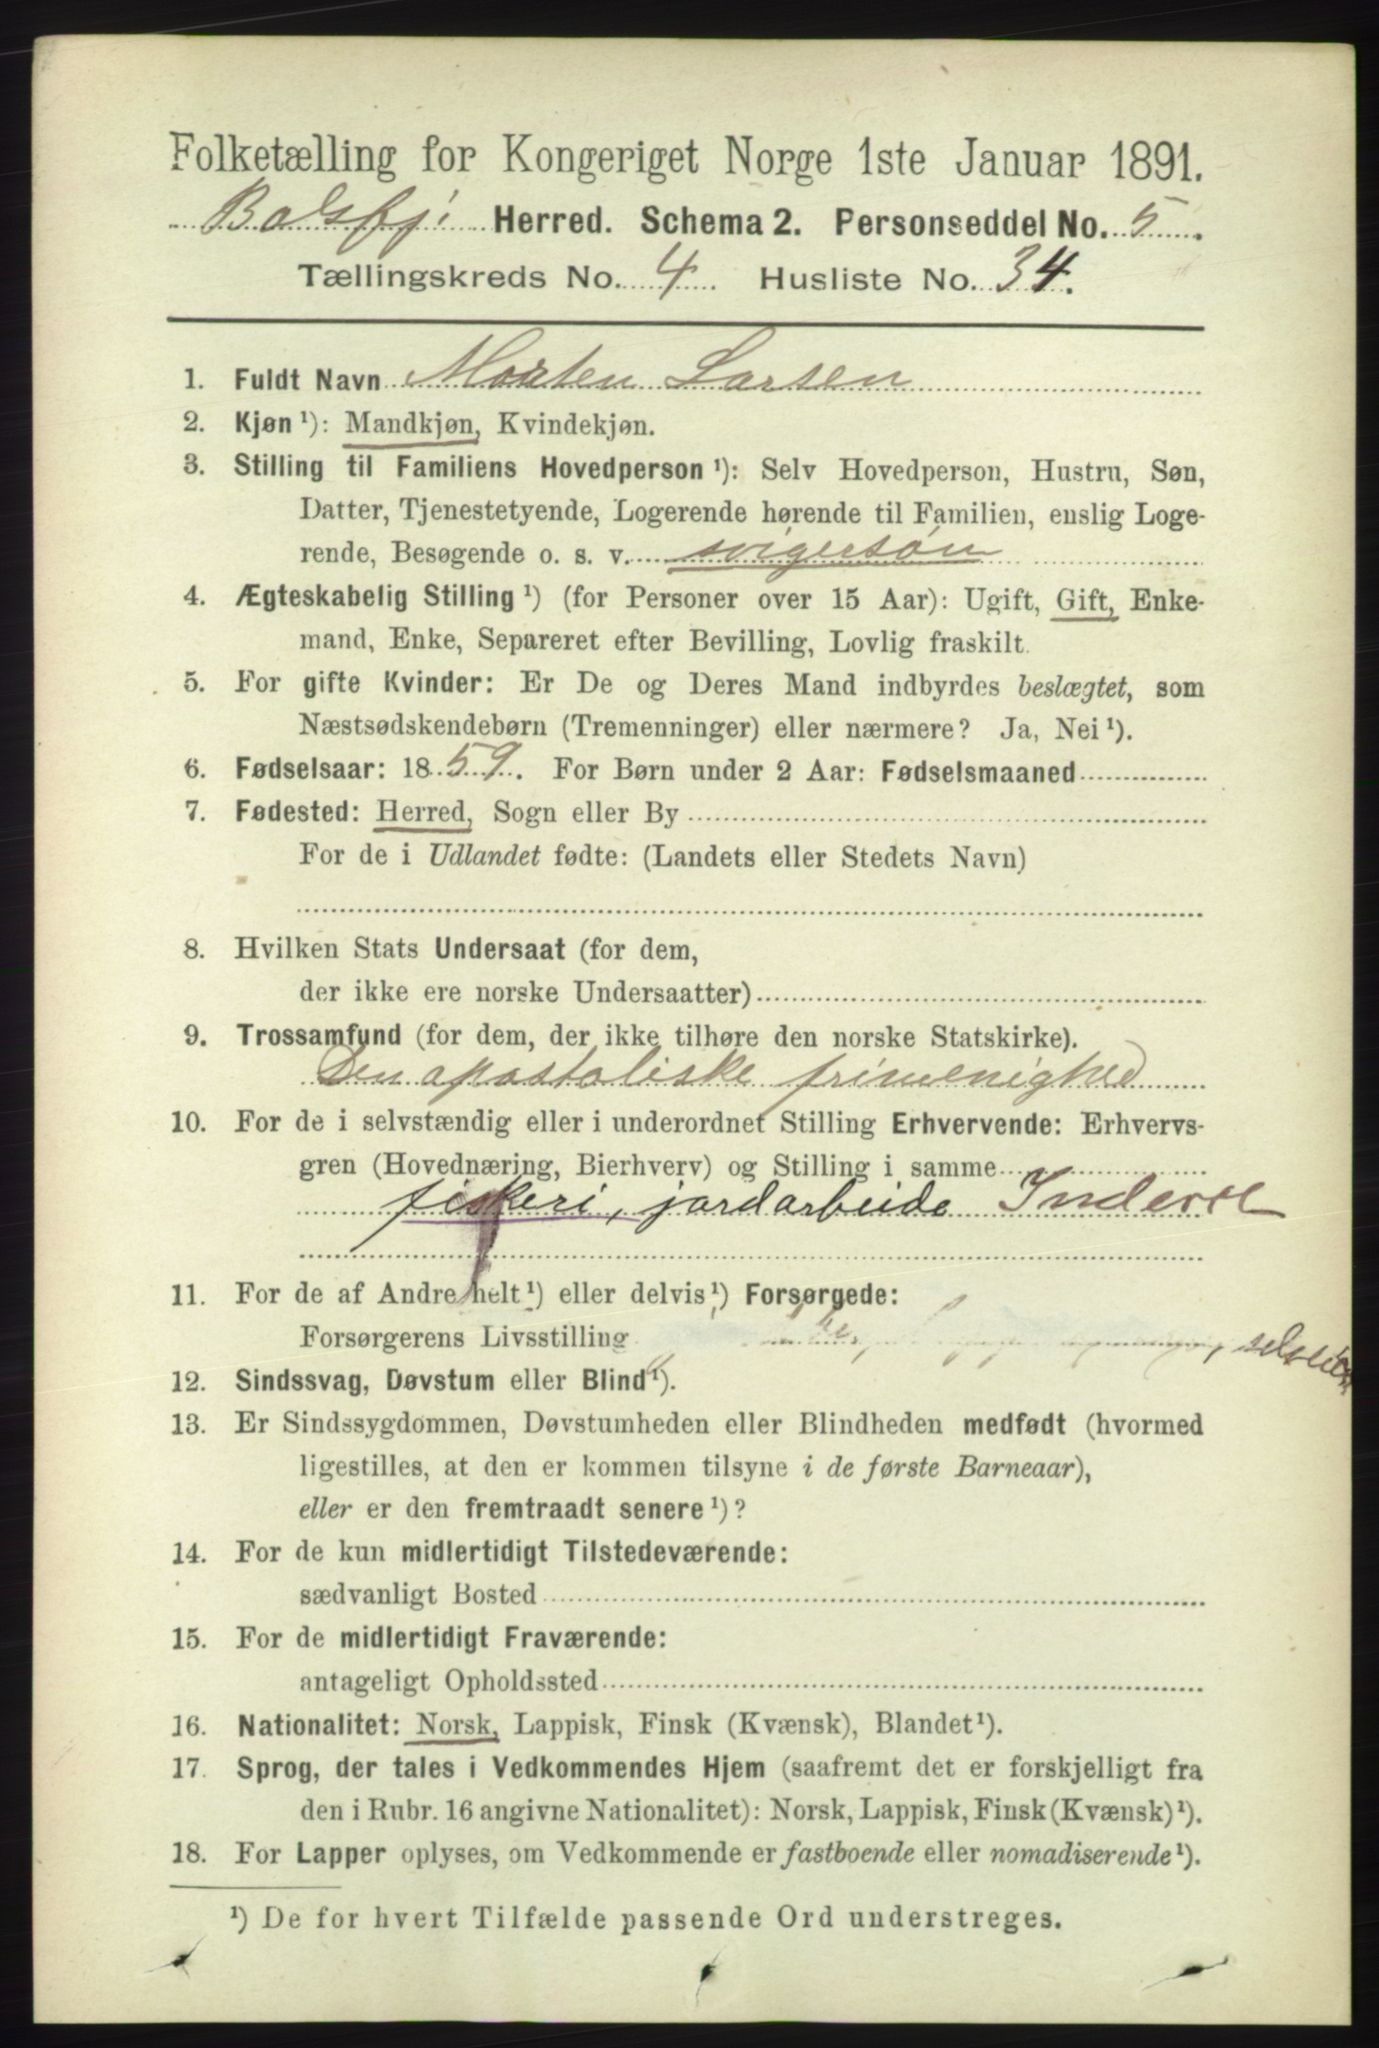 Folketælling for Kongeriget Norge 1ste Januar 1891.
Balsfj. Herred. Schema 2. Personseddel No. 5.
Tællingskreds No. 4. Husliste No. 34.
1. Fuldt Navn Morten Larsen
2. Kjøn ¹): Mandkjøn, Kvindekjøn.
3. Stilling til Familiens Hovedperson ¹): Selv Hovedperson, Hustru, Søn,
Datter, Tjenestetyende, Logerende hørende til Familien, enslig Loge-
rende, Besøgende o. s. v. svigersøn
4. Ægteskabelig Stilling ¹) (for Personer over 15 Aar): Ugift, Gift, Enke-
mand, Enke, Separeret efter Bevilling, Lovlig fraskilt.
5. For gifte Kvinder: Er De og Deres Mand indbyrdes beslægtet, som
Næstsødskendebørn (Tremenninger) eller nærmere? Ja, Nei ¹).
6. Fødselsaar: 1859. For Børn under 2 Aar: Fødselsmaaned
7. Fødested: Herred, Sogn eller By
For de i Udlandet fødte: (Landets eller Stedets Navn)
8. Hvilken Stats Undersaat (for dem,
der ikke ere norske Undersaatter)
9. Trossamfund (for dem, der ikke tilhøre den norske Statskirke).
Den apostoliske frimenighed
10. For de i selvstændig eller i underordnet Stilling Erhvervende: Erhvervs-
gren (Hovednæring, Bierhverv) og Stilling i samme
fiskeri, jordarbeide
11. For de af Andre helt ¹) eller delvis ¹) Forsørgede:
Forsørgerens Livsstilling
12. Sindssvag, Døvstum eller Blind ¹).
13. Er Sindssygdommen, Døvstumheden eller Blindheden medfødt (hvormed
ligestilles, at den er kommen tilsyne i de første Barneaar),
eller er den fremtraadt senere ¹)?
14. For de kun midlertidigt Tilstedeværende:
sædvanligt Bosted
15. For de midlertidigt Fraværende:
antageligt Opholdssted
16. Nationalitet: Norsk, Lappisk, Finsk (Kvænsk), Blandet ¹).
17. Sprog, der tales i Vedkommendes Hjem (saafremt det er forskjelligt fra
den i Rubr. 16 angivne Nationalitet): Norsk, Lappisk, Finsk (Kvænsk) ¹).
18. For Lapper oplyses, om Vedkommende er fastboende eller nomadiserende ¹).
¹) De for hvert Tilfælde passende Ord understreges.